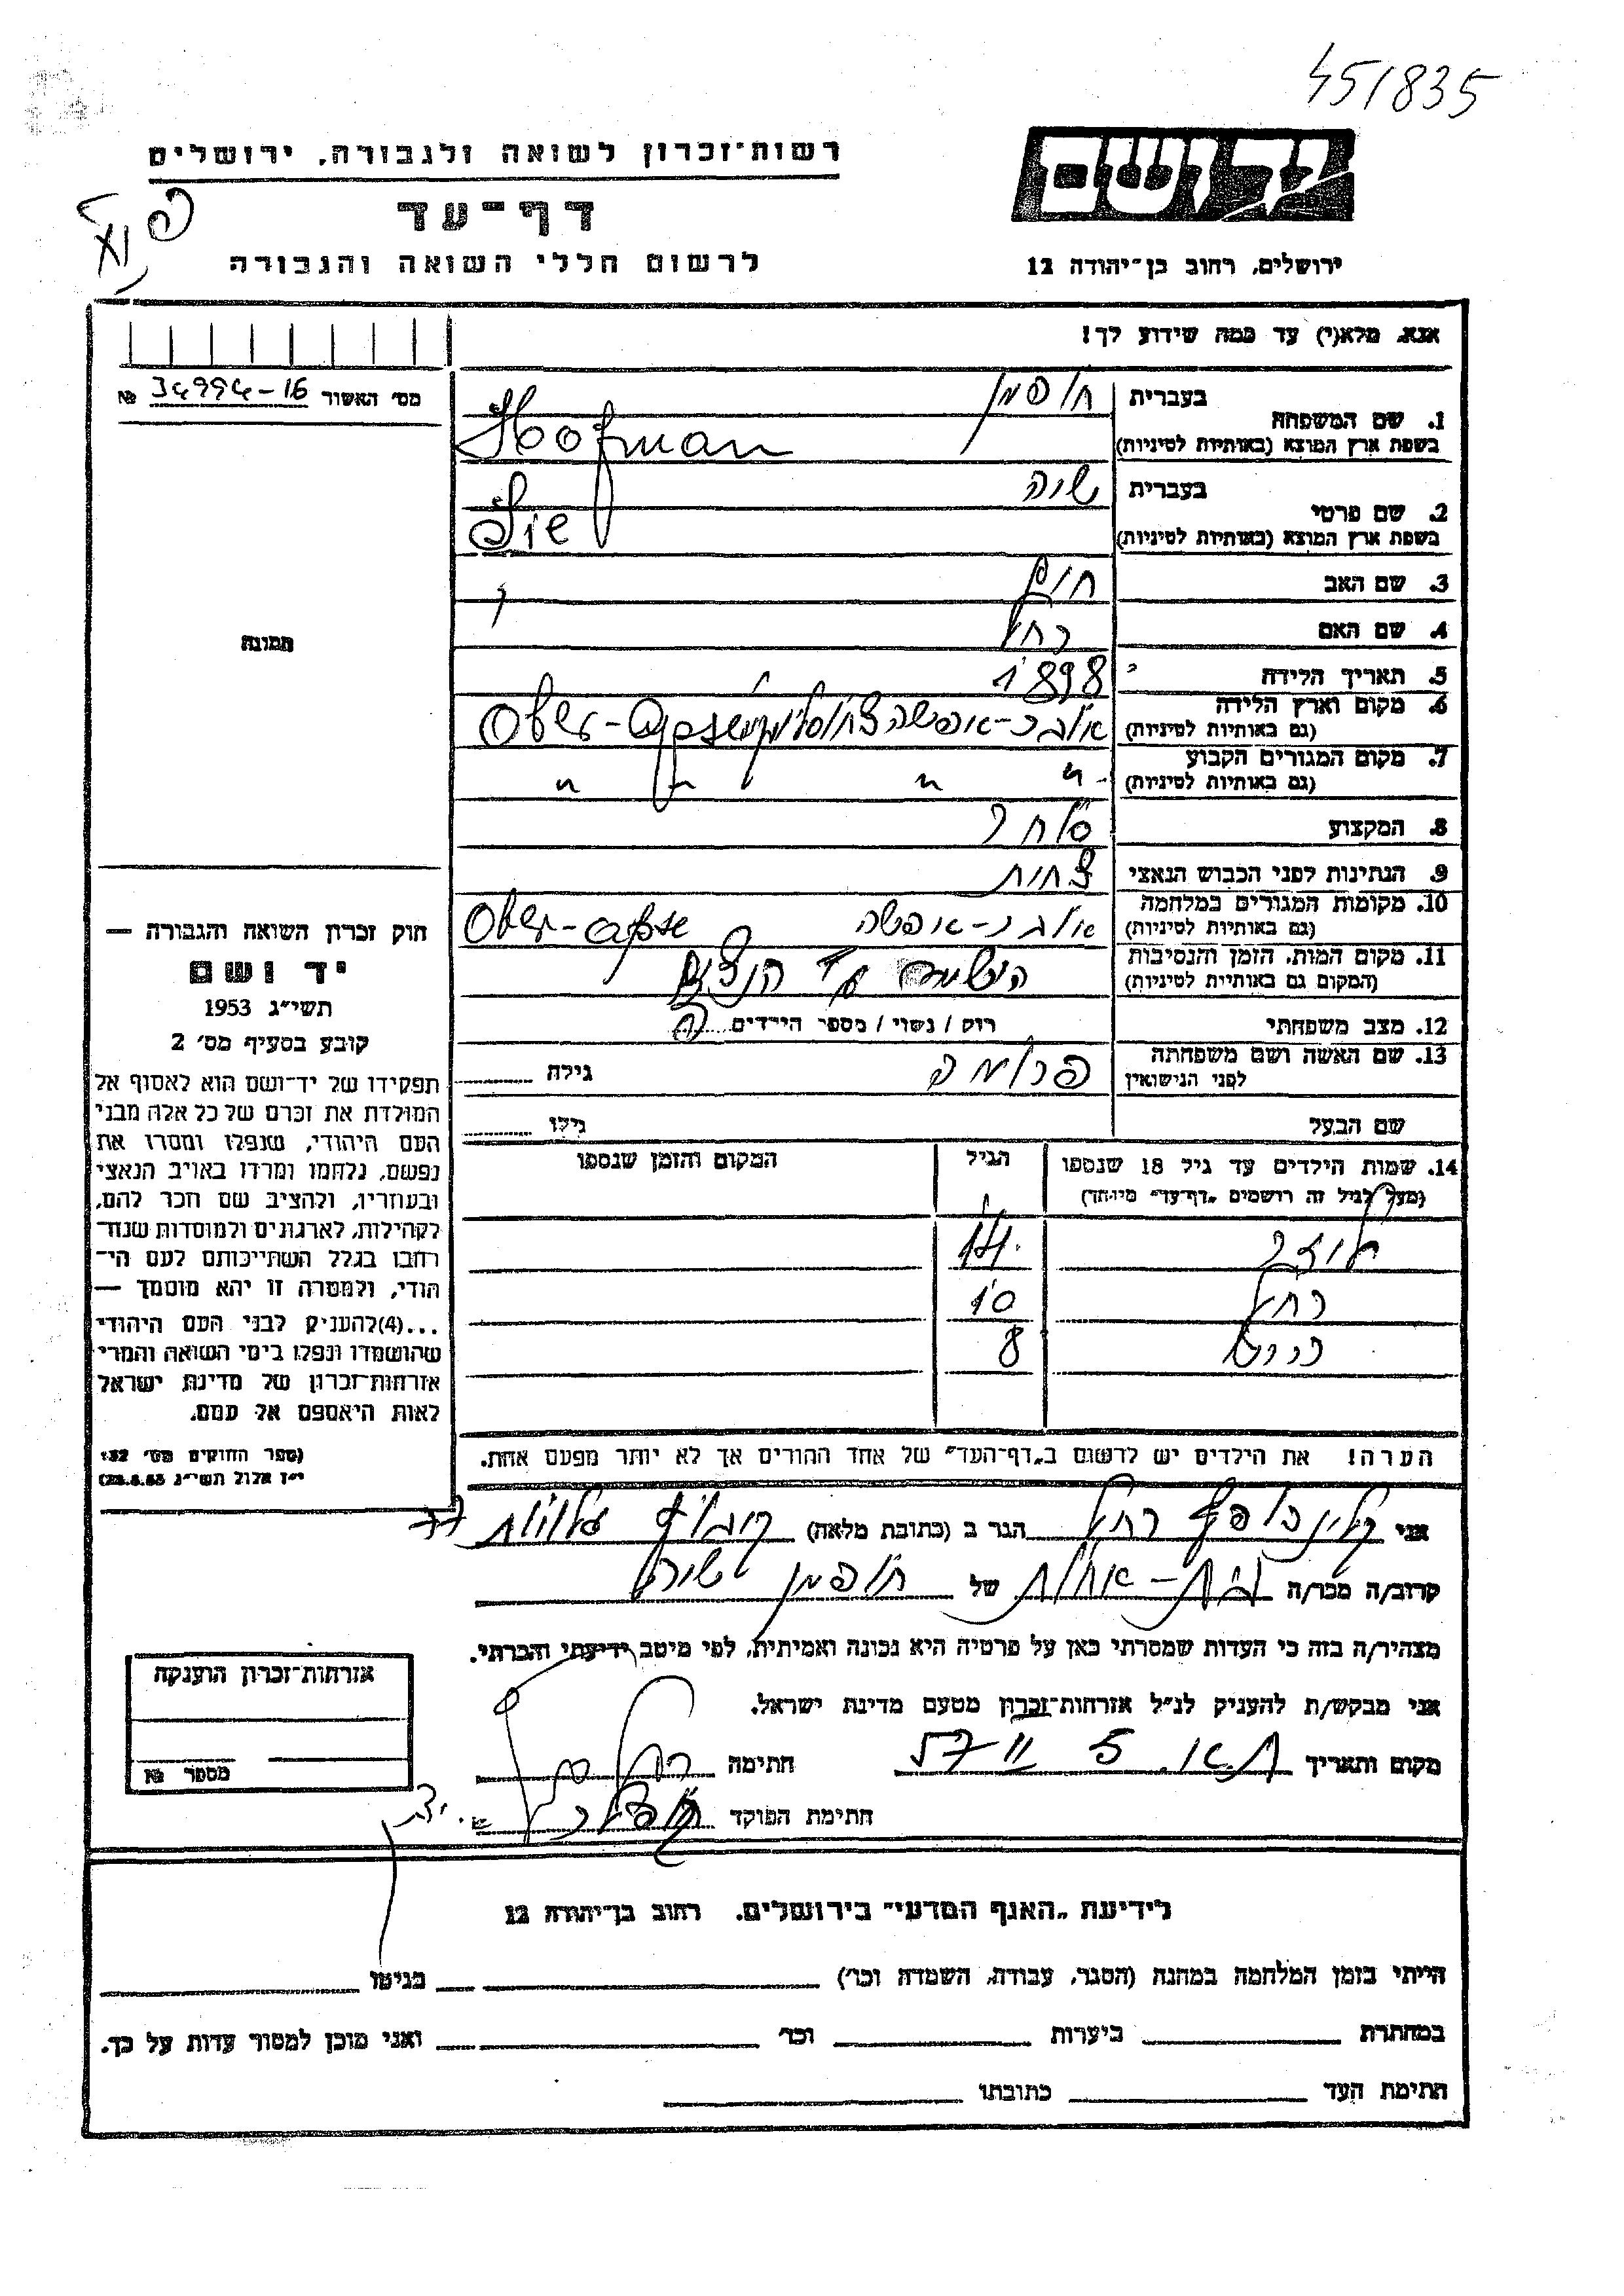 451835
יד ושם
רשות-זכרון לשואה ולגבורה, ירושלים
דף-עד
ירושלים, רחוב בן-יהודה 12
לרשום חללי השואה והגבורה
אנא, מלא(י) עד כמה שידוע לך!
מס׳ האשור 34994-16 №
תמונה
1. שם המשפחה בעברית הופמן
בשפת ארץ המוצא (באותיות לטיניות) Hofman
2. שם פרטי בעברית שיה
בשפת ארץ המוצא (באותיות לטיניות) Sie
3. שם האב
4. שם האם רחל
5. תאריך הלידה 1898
6. מקום וארץ הלידה
(גם באותיות לטיניות) אובר-אפשה Ober-Apse
7. מקום המגורים הקבוע
(גם באותיות לטיניות) " " " "
8. המקצוע סוחר
9. הנתינות לפני הכבוש הנאצי
10. מקומות המגורים במלחמה
(גם באותיות לטיניות) אובר-אפשה Ober-apse
11. מקום המות, הזמן והנסיבות
(המקום גם באותיות לטיניות)
12. מצב משפחתי רווק / נשוי / מספר הילדים
13. שם האשה ושם משפחתה
לפני הנישואין פרומה גילה
שם הבעל גילו
14. שמות הילדים עד גיל 18 שנספו הגיל המקום והזמן שנספו
(מעל לגיל זה רושמים „דף-עד" מיוחד)
14
רחל 10
8
הערה! את הילדים יש לרשום ב„דף-העד" של אחד ההורים אך לא יותר מפעם אחת.
חוק זכרון השואה והגבורה —
יד ושם
תשי״ג 1953
קובע בסעיף מס׳ 2
תפקידו של יד-ושם הוא לאסוף אל
המולדת את זכרם של כל אלה מבני
העם היהודי, שנפלו ומסרו את
נפשם, נלחמו ומרדו באויב הנאצי
ובעוזריו, ולהציב שם וזכר להם,
לקהילות, לארגונים ולמוסדות שנח־
רבו בגלל השתייכותם לעם הי־
הודי, ולמטרה זו יהא מוסמך —
...(4) להעניק לבני העם היהודי
שהושמדו ונפלו בימי השואה והמרי
אזרחות-זכרון של מדינת ישראל
לאות היאספם אל עמם.
(ספר החוקים מס׳ 132
י״ז אלול תשי״ג 28.8.53)
אני רחל הגר ב (כתובת מלאה)
קרוב/ה מכר/ה בת-אחות של הופמן
מצהיר/ה בזה כי העדות שמסרתי כאן על פרטיה היא נכונה ואמיתית, לפי מיטב ידיעתי והכרתי.
אני מבקש/ת להעניק לנ״ל אזרחות-זכרון מטעם מדינת ישראל.
מקום ותאריך חתימה
חתימת הפוקד
אזרחות-זכרון הוענקה
מספר №
לידיעת „האגף המדעי" בירושלים, רחוב בן-יהודה 12
הייתי בזמן המלחמה במחנה (הסגר, עבודה, השמדה וכו׳) בגיטו
במחתרת ביערות וכו׳ ואני מוכן למסור עדות על כך.
חתימת העד כתובתו